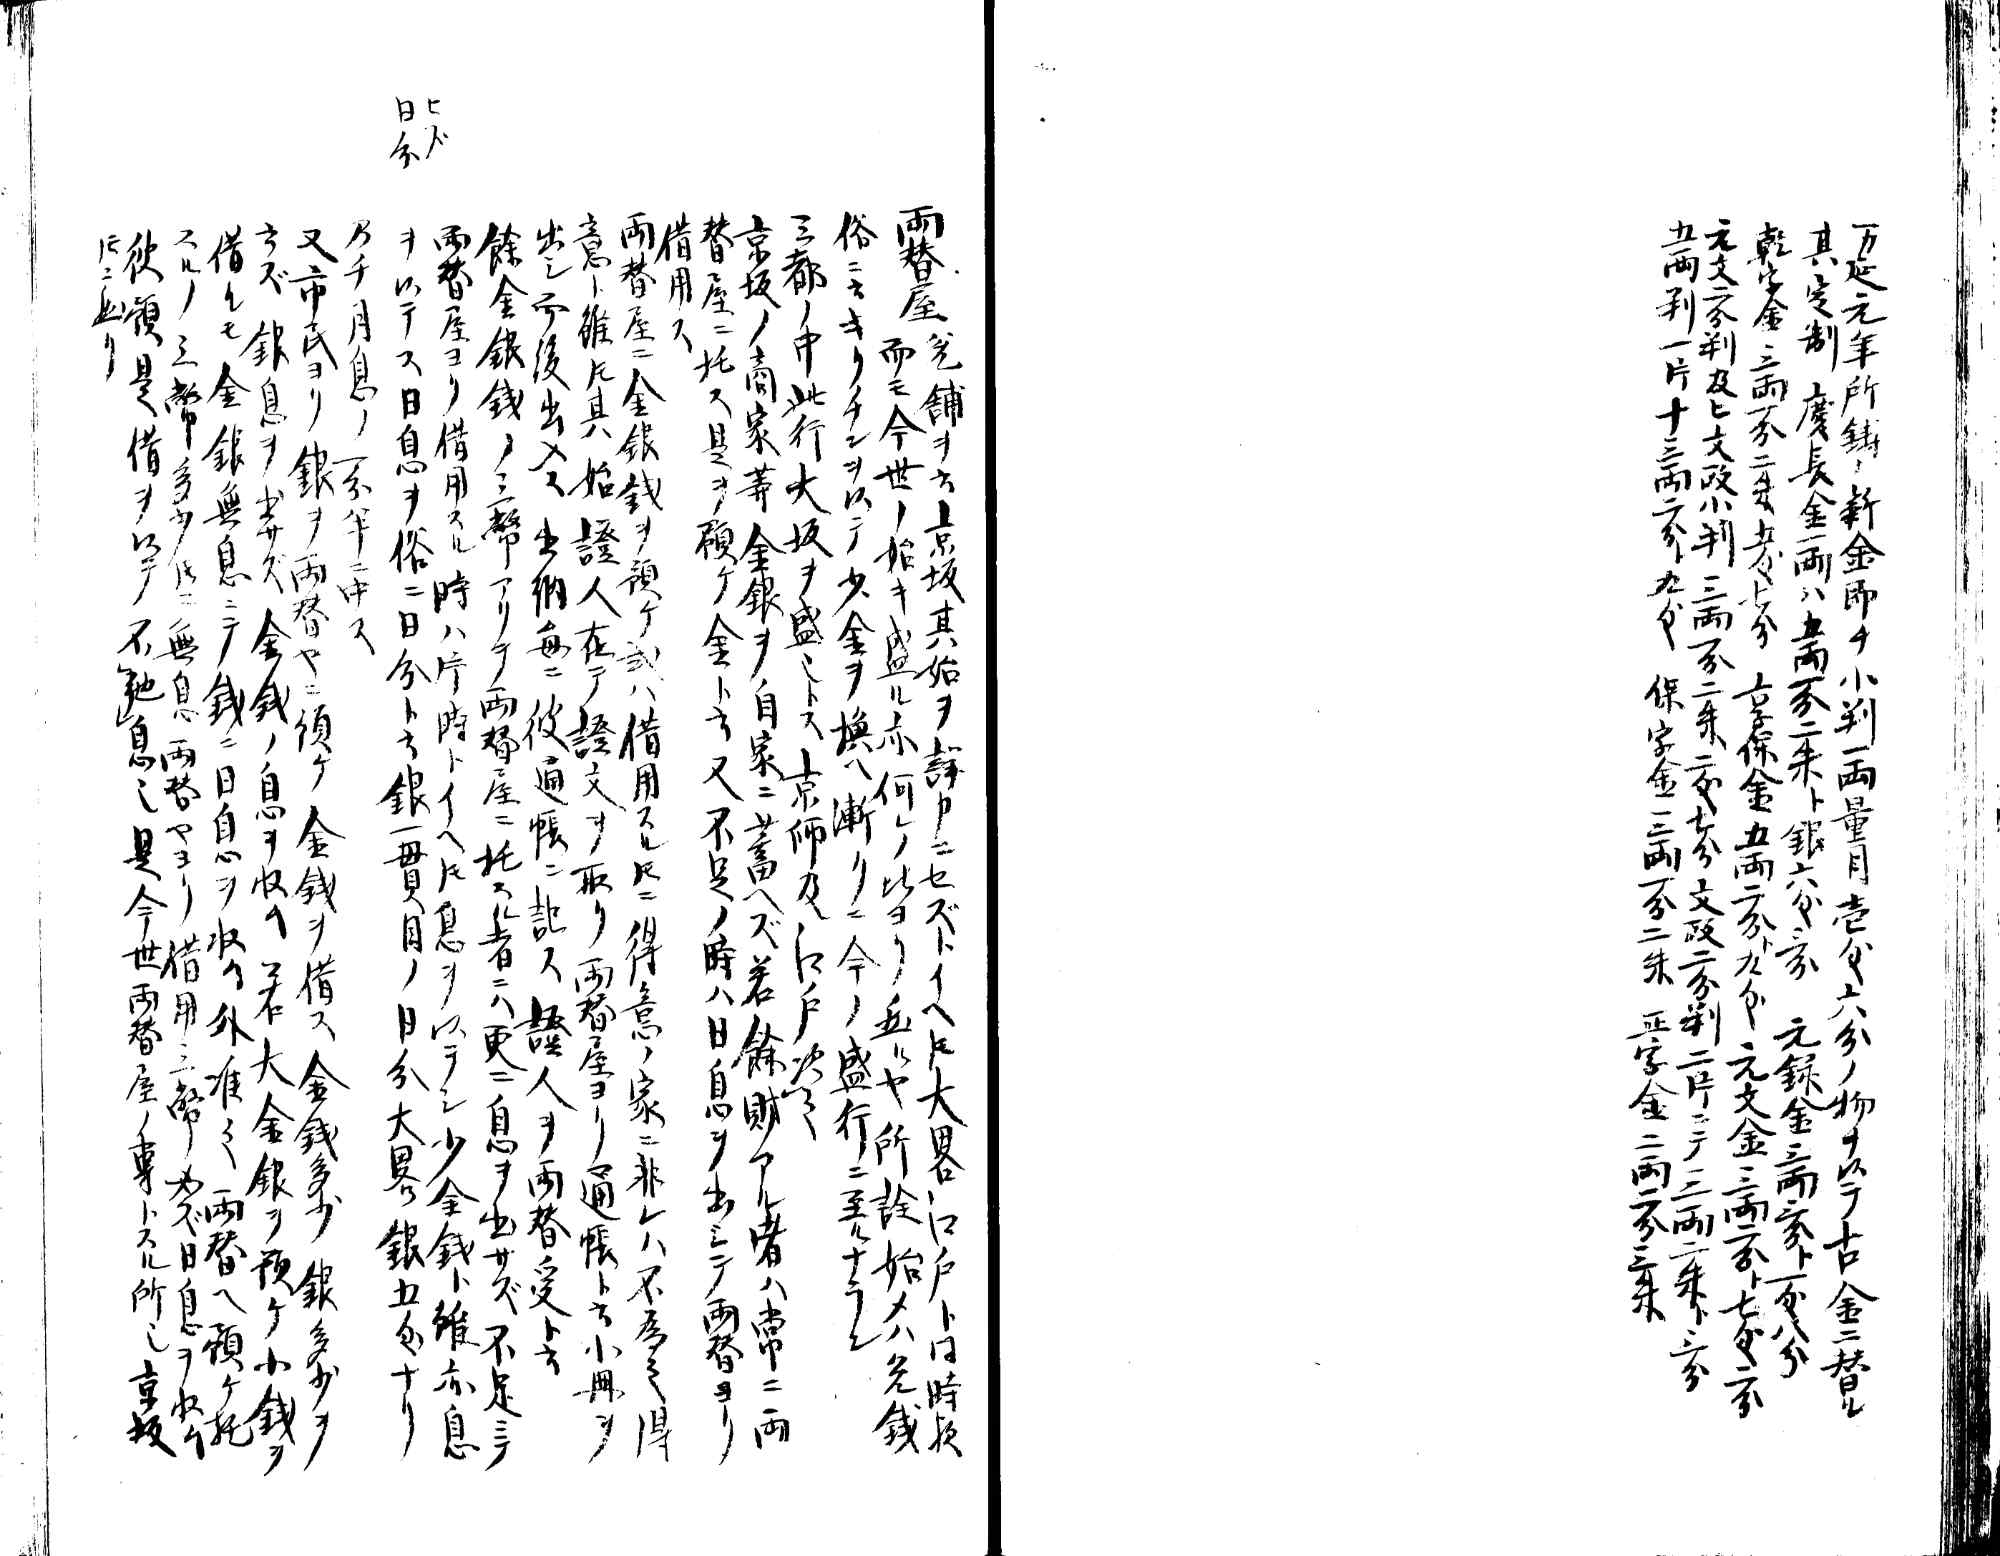 万延元年所鋳ノ新金即チ小判一両量目壱匁六分ノ物ヲ以テ古金二替ル
其定制 慶長金一両ハ五両一分二朱ト銀六匁三分 元録金三両三分ト一匁八分
乾字金三両一分二朱五匁七分 享保金五両二分ト九分 元文金三両二分ト七匁二分
元文二分判及ヒ文政小判三両一分二朱二匁七分 文政二分判二片ニテ三両二朱ト三分
五両判一片十三両二分ト九匁 保字金三両一分二朱 正字金二両二分三朱
両替屋 兌舗ヲ云京坂其始ヲ詳カニセズトイヘ𪜈大畧江戸ト同時歟
而モ今世ノ始キ盛ル亦何レノ比ヨリ乎ルヤ所詮始メハ兌銭
俗ニ云キリチンヲ以テ少金ヲ換ヘ漸クニ今ノ盛行ニ至ルナラン
三都ノ中此行大坂ヲ盛ントス京師及江戸次之
京坂ノ商家等金銀ヲ自家ニ蓄ヘズ若餘財アル者ハ常ニ両
替屋ニ托ス是ヲ預ケ金ト云又不足ノ時ハ日息ヲ出シテ両替ヨリ
借用ス
両替屋ニ金銀銭ヲ預ケ或ハ借用スル𪜈ニ得意ノ家ニ非レハ不為之得
意ト雖𪜈其始證人在テ證文ヲ取リ両替屋ヨリ通帳ト云小冊ヲ
出シ而後出入ス出納毎ニ彼通帳ニ記ス證人ヲ両替受ト云
餘金銀銭ノ三幣アリテ両替屋ニ托スル者ニハ更ニ息ヲ出サズ不足ニテ
両替屋ヨリ借用スル時ハ片時トイヘ𪜈息ヲ以テシ少金銭ト雖亦息
ヲ以テス日息ヲ俗ニ日分ト云銀一貫目ノ日分大畧銀五分ナリ
ヒブ
日分
乃チ月息ノ一分半ニ中ス
又市民ヨリ銀ヲ両替ヤニ預ケ金銭ヲ借ス金銭多少銀多少ヲ
云ズ銀息ヲ出サズ金銭ノ息ヲ収ム若大金銀ヲ預ケ小銭ヲ
借ルモ金銀無息ニテ銭ニ日息ヲ収ム外准之両替ヘ預ケ托
スルノ三幣多少𪜈ニ無息両替ヤヨリ借用三幣必ズ日息ヲ収ム
彼預是借ヲ以テ不弛息之是今世両替屋ノ専トスル所之京坂
𪜈ニ然リ